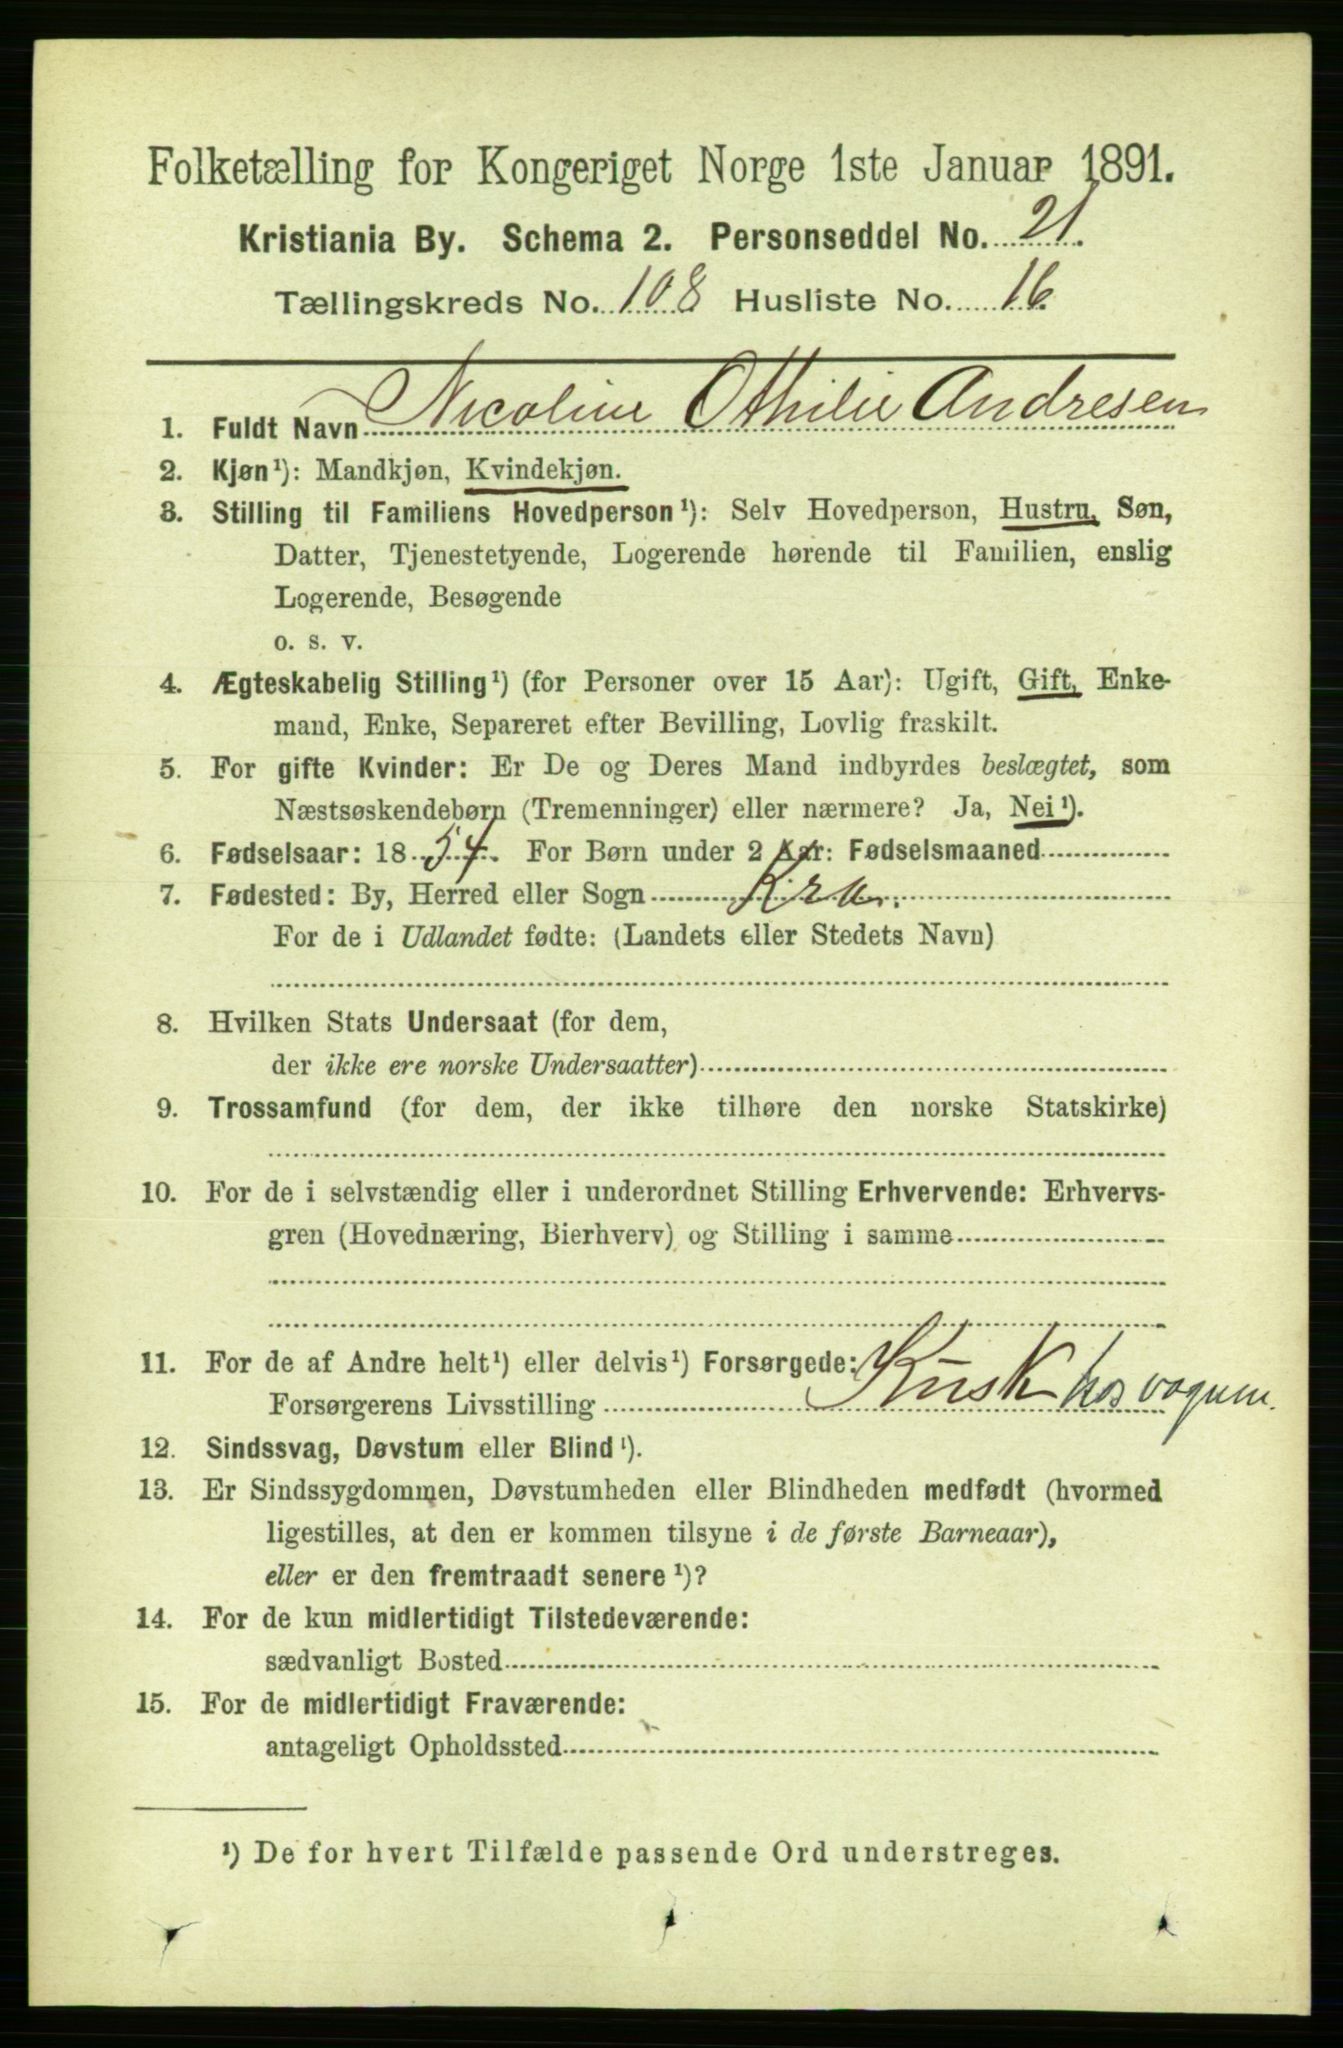 Folketælling for Kongeriget Norge 1ste Januar 1891.
Kristiania By. Schema 2. Personseddel No. 21.
Tællingskreds No. 108 Husliste No. 16.
1. Fuldt Navn Nicoline Othilie Andresen
2. Kjøn¹): Mandkjøn, Kvindekjøn.
3. Stilling til Familiens Hovedperson¹): Selv Hovedperson, Hustru, Søn,
Datter, Tjenestetyende, Logerende hørende til Familien, enslig
Logerende, Besøgende
o. s. v.
4. Ægteskabelig Stilling¹) (for Personer over 15 Aar): Ugift, Gift, Enke-
mand, Enke, Separeret efter Bevilling, Lovlig fraskilt.
5. For gifte Kvinder: Er De og Deres Mand indbyrdes beslægtet, som
Næstsøskendebørn (Tremenninger) eller nærmere? Ja, Nei¹).
6. Fødselsaar: 1854. For Børn under 2 Aar: Fødselsmaaned
7. Fødested: By, Herred eller Sogn Kra.
For de i Udlandet fødte: (Landets eller Stedets Navn)
8. Hvilken Stats Undersaat (for dem,
der ikke ere norske Undersaatter)
9. Trossamfund (for dem, der ikke tilhøre den norske Statskirke)
10. For de i selvstændig eller i underordnet Stilling Erhvervende: Erhvervs-
gren (Hovednæring, Bierhverv) og Stilling i samme
11. For de af Andre helt¹) eller delvis¹) Forsørgede:
Forsørgerens Livsstilling Kusk hos vognm.
12. Sindssvag, Døvstum eller Blind¹).
13. Er Sindssygdommen, Døvstumheden eller Blindheden medfødt (hvormed
ligestilles, at den er kommen tilsyne i de første Barneaar),
eller er den fremtraadt senere¹)?
14. For de kun midlertidigt Tilstedeværende:
sædvanligt Bosted
15. For de midlertidigt Fraværende:
antageligt Opholdssted
¹) De for hvert Tilfælde passende Ord understreges.